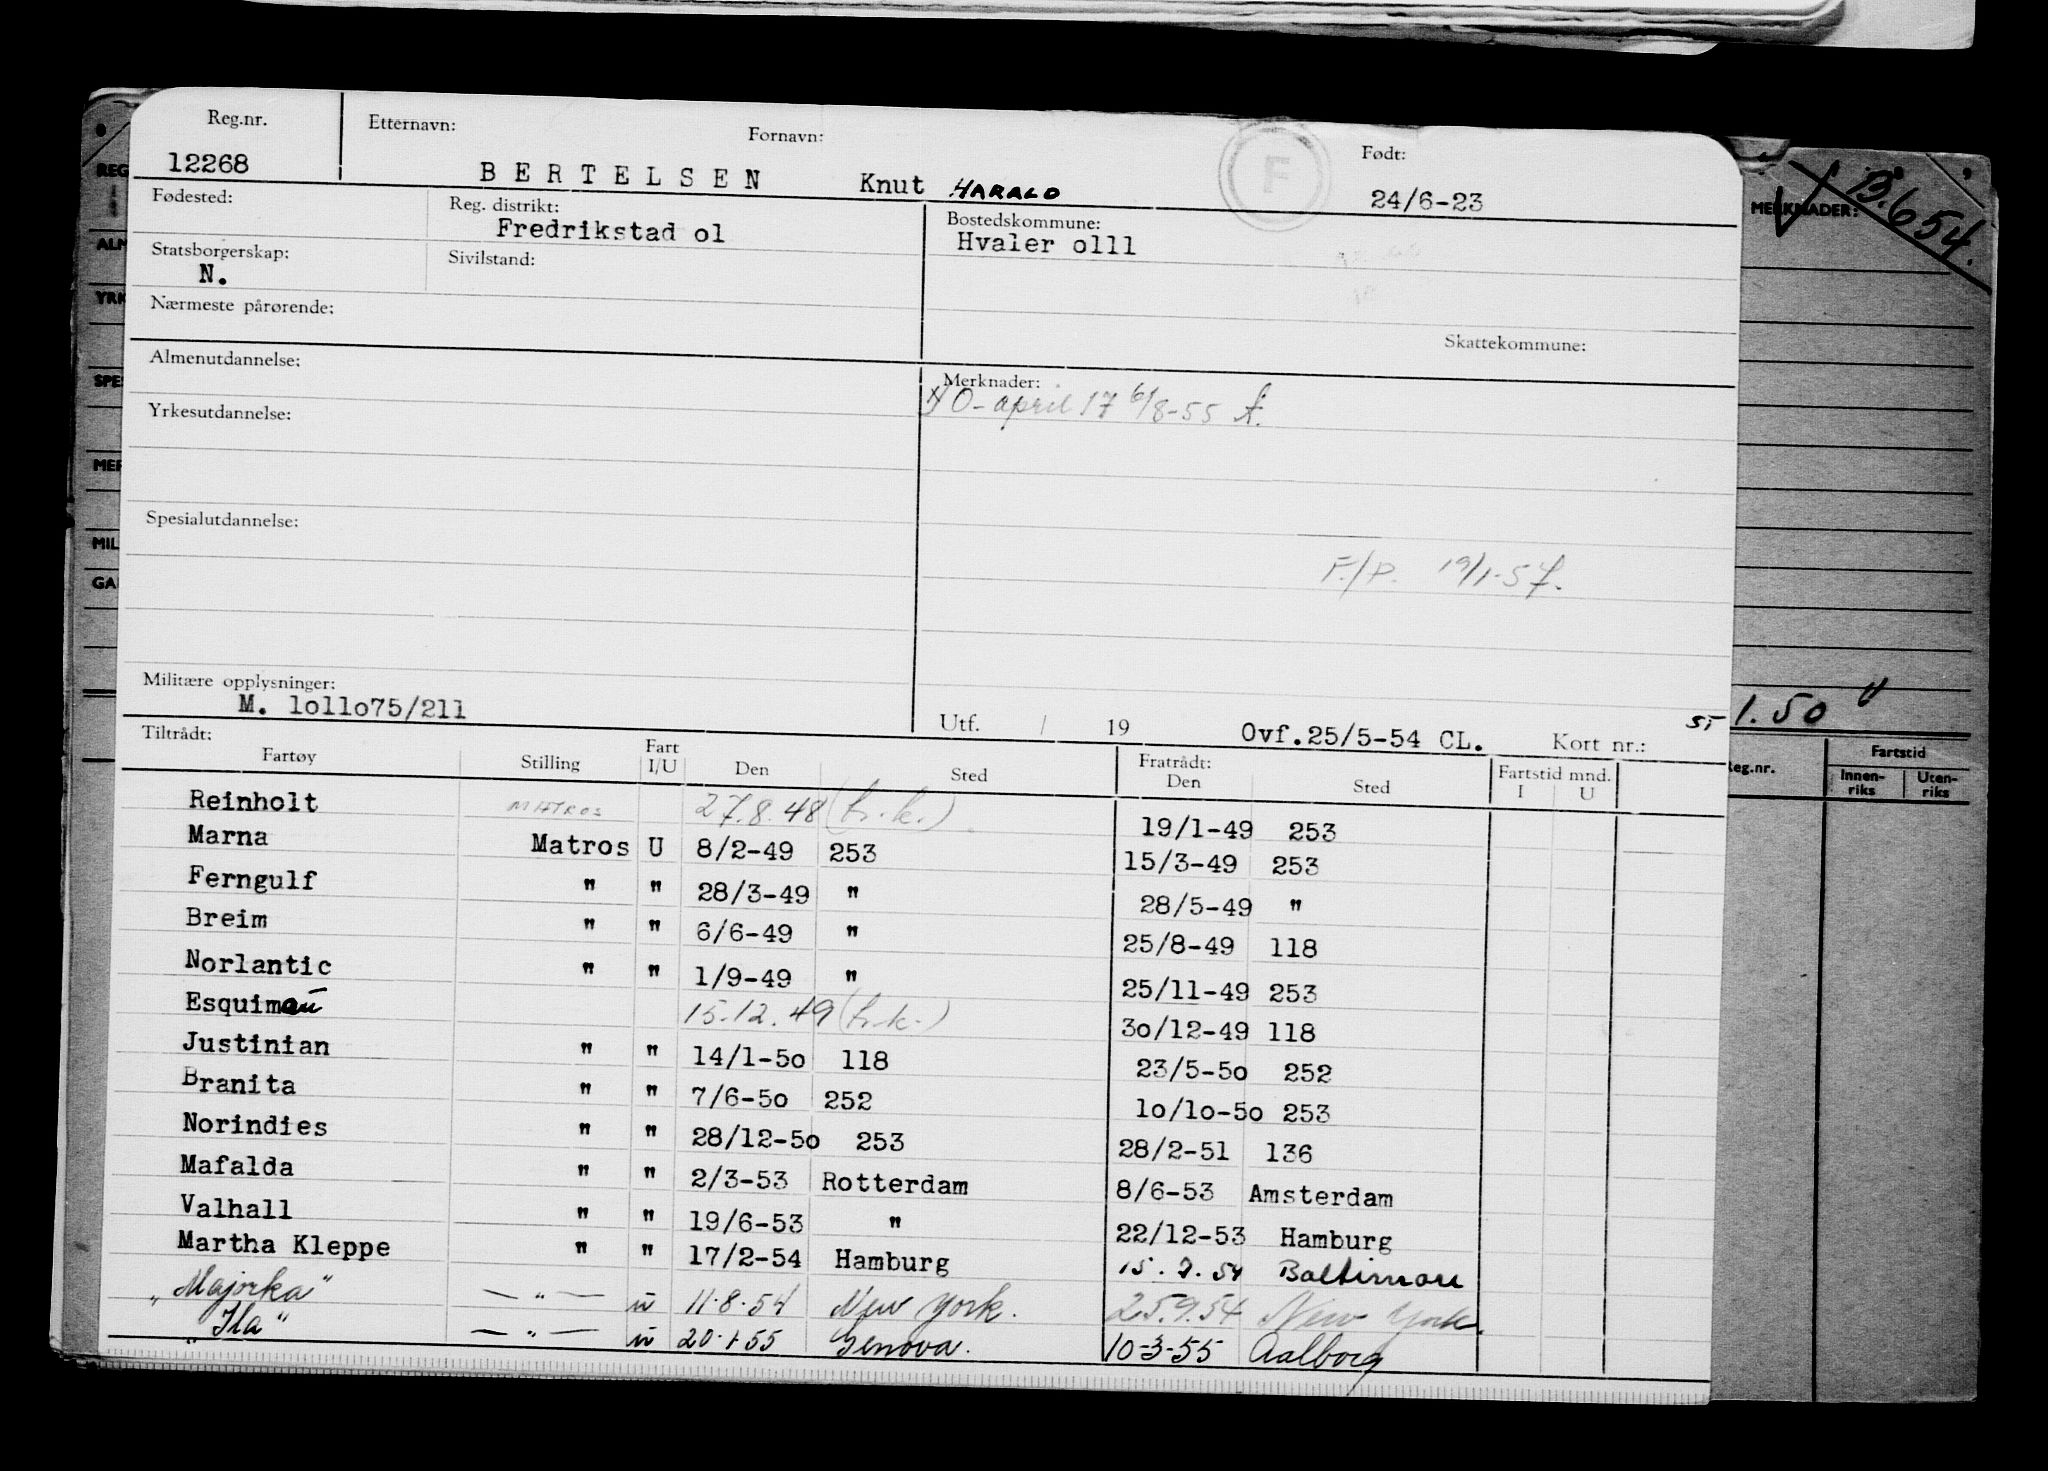 Reg.nr. Etternavn: Fornavn: Født:
12268 BERTELSEN Knut HARALD 24/6-23
F
Fødested: Reg. distrikt: Bostedskommune:
Fredrikstad o1 Hvaler o111
Statsborgerskap: Sivilstand:
N.
Nærmeste pårørende:
Skattekommune:
Almenutdannelse: Merknader:
O- april 17 6/8-55
Yrkesutdannelse:
Spesialutdannelse:
F./P. 19/1-57.
Militære opplysninger:
M. 1o11o75/211
Utf. / 19 Ovf.25/5-54 CL. Kort nr.: ST
Tiltrådt: Fratrådt:
Fartøy Stilling Fart I/U Den Sted Den Sted Fartstid mnd. I U
Reinholt MATROS 27.8.48 (tr.k.) 19/1-49 253
Marna Matros U 8/2-49 253 15/3-49 253
Ferngulf " " 28/3-49 " 28/5-49 "
Breim " " 6/6-49 " 25/8-49 118
Norlantic " " 1/9-49 " 25/11-49 253
Esquimau 15.12.49 (tr.k.) 30/12-49 118
Justinian " " 14/1-5o 118 23/5-5o 252
Branita " " 7/6-5o 252 1o/1o-5o 253
Norindies " " 28/12-5o 253 28/2-51 136
Mafalda " " 2/3-53 Rotterdam 8/6-53 Amsterdam
Valhall " " 19/6-53 " 22/12-53 Hamburg
Martha Kleppe " " 17/2-54 Hamburg 15.7.54 Baltimore
„Majorka" — " — u 11.8.54 New York. 25.9.54 New York.
"Ila" — " — u 20.1.55 Genova. 10-3-55 Aalborg
REG
ALM
YRK
SPES
MER
MIL
GA
MERKNADER:
B.654.
1.50
Reg.nr. Fartstid
Innen-riks Uten-riks